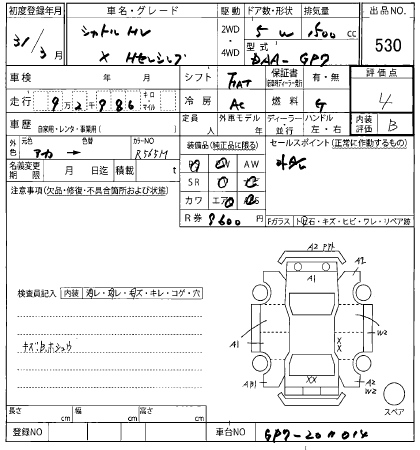 初度登録年月 車名・グレード 駆動 ドア数・形状 排気量 出品NO
31/3月 シャトル HV 2WD・4WD 5 W 1500 cc 530
X Hセンシング 型式 DAA-GP7
車検 年 月 シフト FAT 保証書 有・無 評価点 4
走行 9万2千986 キロ マイル 冷房 AC 燃料 G
車歴 自家用・レンタ・事業用( ) 定員 人 外車モデル 年 ディーラー 並行 ハンドル 左・右 内装評価 B
外色 元色 色替 カラーNO R565M 装備品(純正品に限る) セールスポイント(正常に作動するもの)
名義変更期限 月 日迄 積載 t PS PW AW
注意事項(欠品・修復・不具合箇所および状態) SR ナビ
カワ エアB ABS
R券 9600円 Fガラス ト石・キズ・ヒビ・ワレ・リペア跡
A2
A1 A2
検査員記入 内装 汚レ・スレ・キズ・キレ・コゲ・穴
A1 X X W2
XX A2 W2
スペア
長さ cm 幅 cm 高さ cm
登録NO 車台NO GP7-20